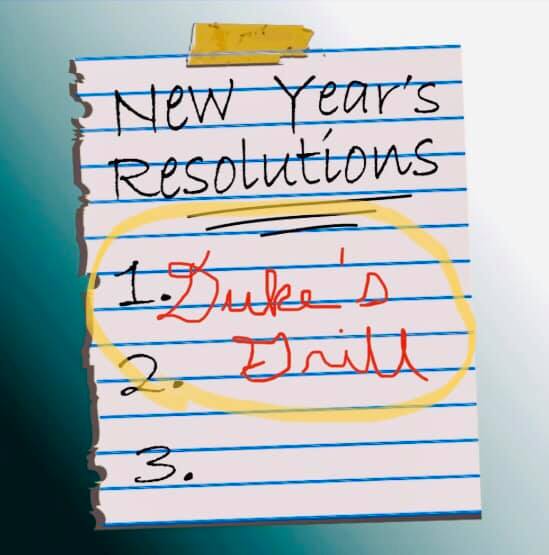 New Year's
Resolutions
1. Duke's
2. Drill
3.